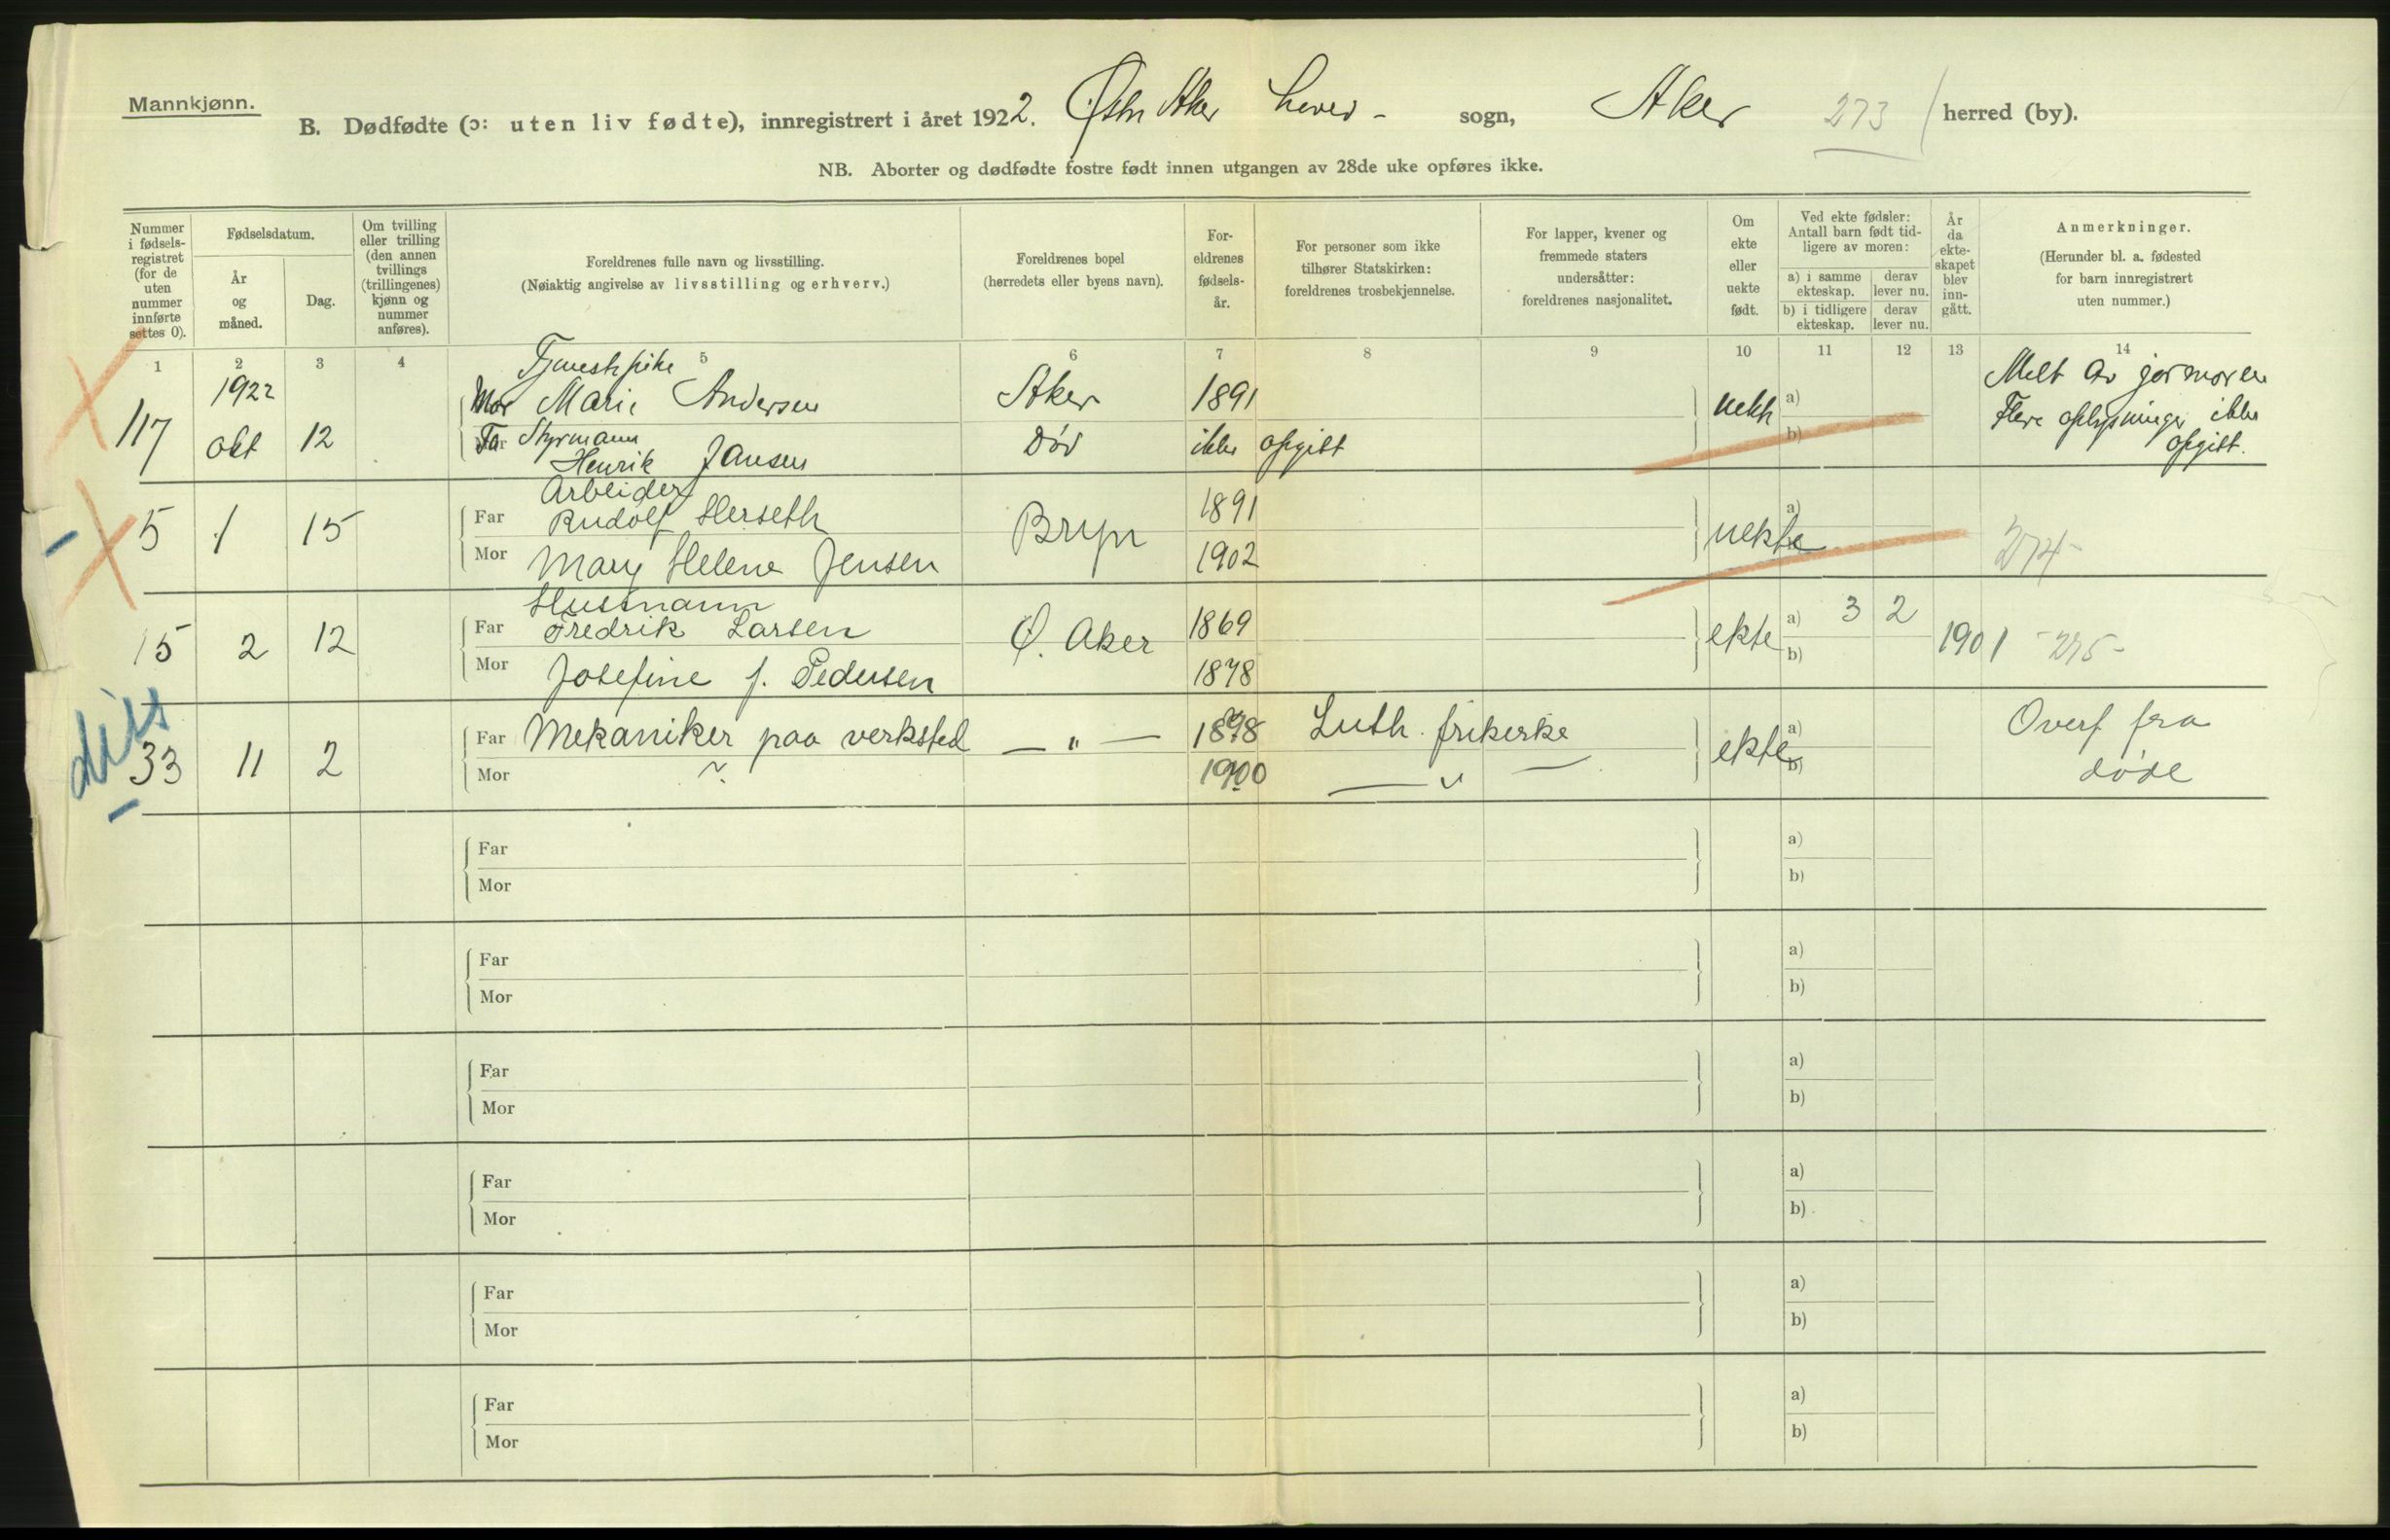 Mannkjønn.
B. Dødfødte (ɔ: uten liv fødte), innregistrert i året 1922. Østre Aker hoved- sogn, Aker 273 herred (by).
NB. Aborter og dødfødte fostre født innen utgangen av 28de uke opføres ikke.
Nummer i fødselsregistret (for de uten nummer innførte settes 0).
Fødselsdatum.
År og måned.
Dag.
Om tvilling eller trilling (den annen tvillings (trillingenes) kjønn og nummer anføres).
Foreldrenes fulle navn og livsstilling.
(Nøiaktig angivelse av livsstilling og erhverv.)
Foreldrenes bopel
(herredets eller byens navn).
Foreldrenes fødselsår.
For personer som ikke tilhører Statskirken: foreldrenes trosbekjennelse.
For lapper, kvener og fremmede staters undersåtter: foreldrenes nasjonalitet.
Om ekte eller uekte født.
Ved ekte fødsler: Antall barn født tidligere av moren:
a) i samme ekteskap. derav lever nu.
b) i tidligere ekteskap. derav lever nu.
År da ekteskapet blev inngått.
Anmerkninger.
(Herunder bl. a. fødested for barn innregistrert uten nummer.)
1 2 3 4 5 6 7 8 9 10 11 12 13 14
Tjenestepike
117 1922 okt 12 Mor Marie Andersen Aker 1891 uekte a) b) Melt av jormoren
Far Styrmann Henrik Jansen Død ikke opgitt Flere oplysninger ikke opgitt.
Arbeider
5 1 15 Far Rudolf Herseth Bryn 1891 uekte a) 274-
Mor Mary Helene Jensen 1902
Husmann
15 2 12 Far Fredrik Larsen Ø. Aker 1869 ekte a) 3 2 1901 -275-
Mor Josefine f. Pedersen 1878 b)
33 11 2 Far Mekaniker paa verksted — " — 1898 Luth. frikirke ekte a) b) Overf fra døde
Mor 1900 — " —
Far a)
Mor b)
Far a)
Mor b)
Far a)
Mor b)
Far a)
Mor b)
Far a)
Mor b)
Far a)
Mor b)